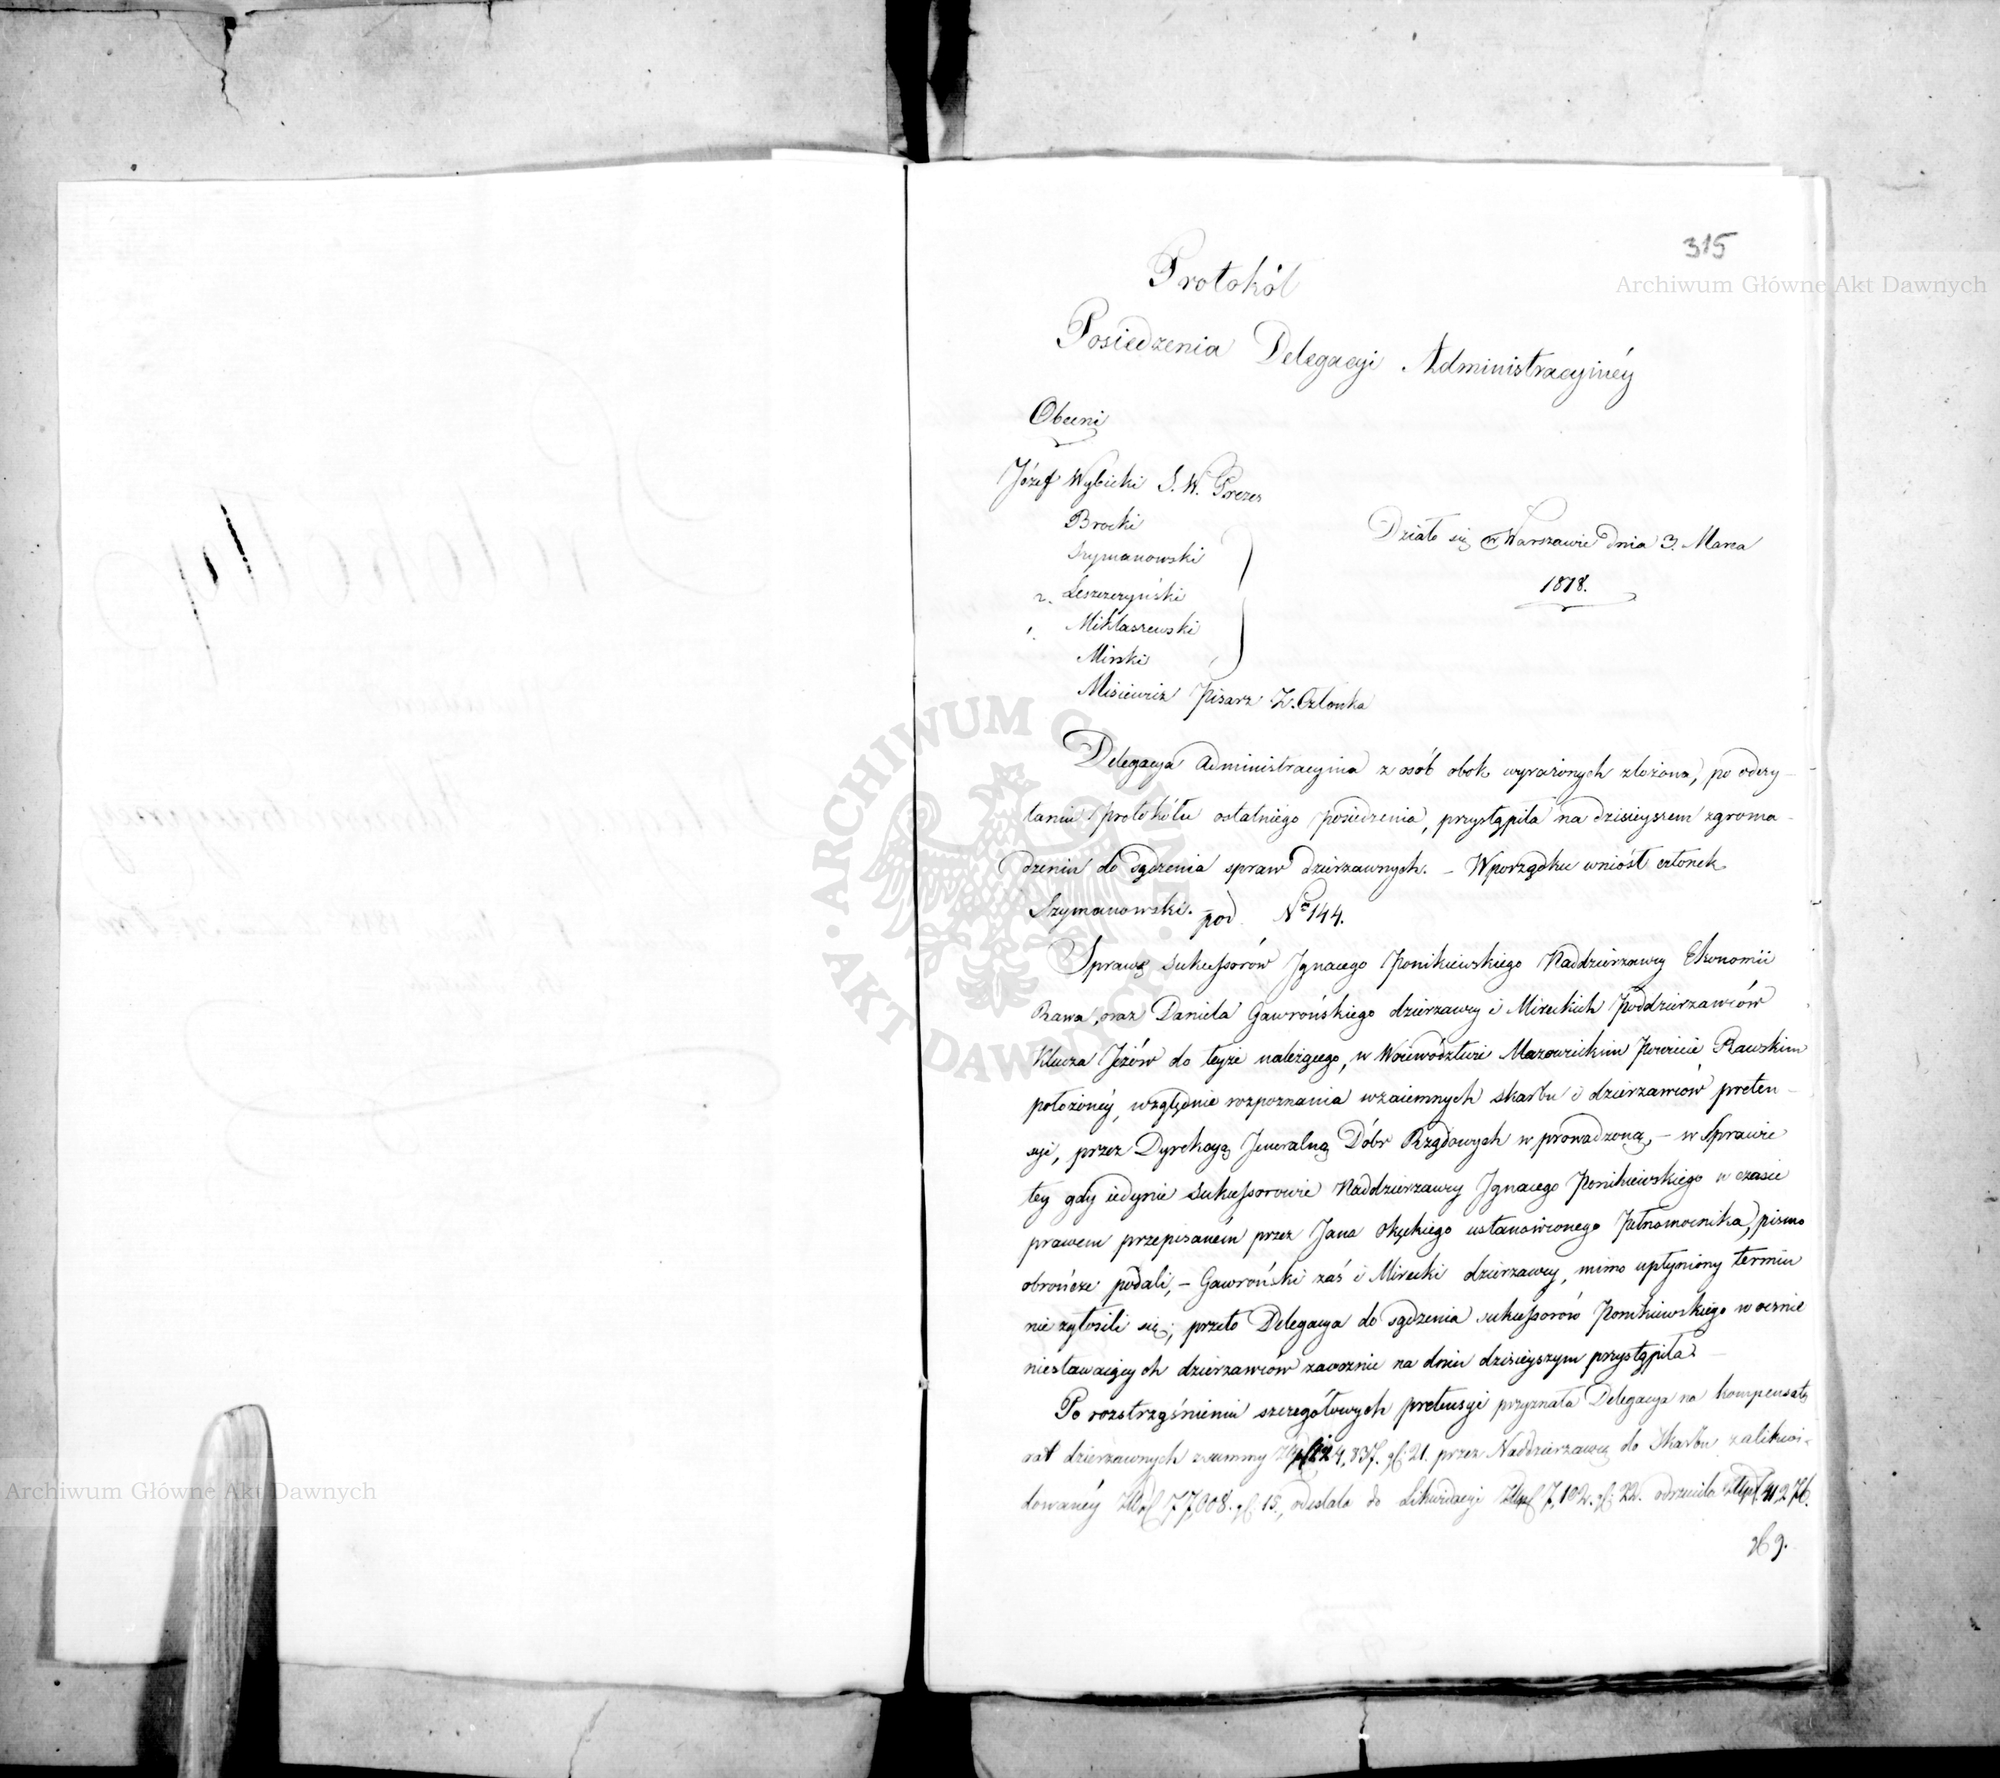 315
Archiwum Główne Akt Dawnych
Protokół
Posiedzenia Delegacyi Administracyinéy
Obecni
Józef Wybicki S. W. Prezes
Brocki
Szymanowski
2. Leszczyński
1. Miklaszewski
Mirski
Misiewicz Pisarz Z. Członka
Działo się w Warszawie dnia 3. Marca
1818.
Delegacya Administracyina z osób obok wyrażonych złożona, po odczy-
taniu protokółu ostatniego posiedzenia, przystąpiła na dzisieyszem zgroma-
dzeniu do sądzenia spraw dzierzawnych. – W porządku wniósł członek
Szymanowski. pod Nrm 144.
Sprawę Sukcessorów Ignacego Ponikiewskiego Naddzierzawcy Ekonomii
Rawa, oraz Daniela Gawrońskiego dzierzawcy i Mireckich Poddzierzawców
Klucza Jeżów do teyże należącego, w Woiewództwie Mazowieckim Powiecie Rawskim
położonéy, względnie rozpoznania wzaiemnych skarbu i dzierzawców preten-
syi, przez Dyrekcyą Jeneralną Dóbr Rządowych w prowadzoną, – w Sprawie
tey gdy iedynie Sukcessorowie Naddzierzawcy Ignacego Ponikiewskiego w czasie
prawem przepisaném przez Jana Okęckiego ustanowionego Pełnomocnika, pismo
obrończe podali, – Gawroński zaś i Mirecki dzierzawcy, mimo upłyniony termin
nie zgłosili się; przeto Delegacya do sądzenia sukcessorów Ponikiewskiego w ocznie
niestawaiących dzierzawców zaocznie na dniu dzisieyszym przystąpiła. –
Po rozstrząśnieniu szczegółowych pretensyi przyznała Delegacya na kompensatę
rat dzierzawnych z summy 21. przez Naddzierzawcę do Skarbu zalikwi-
dowanéy Złpl 77,008. gl. 15., odesłała do Likwidacyi Złpl 7,102. gl. 22. odrzuciła
gl 9.
Archiwum Główne Akt Dawnych
ARCHIWUM GŁÓWNE AKT DAWNYCH